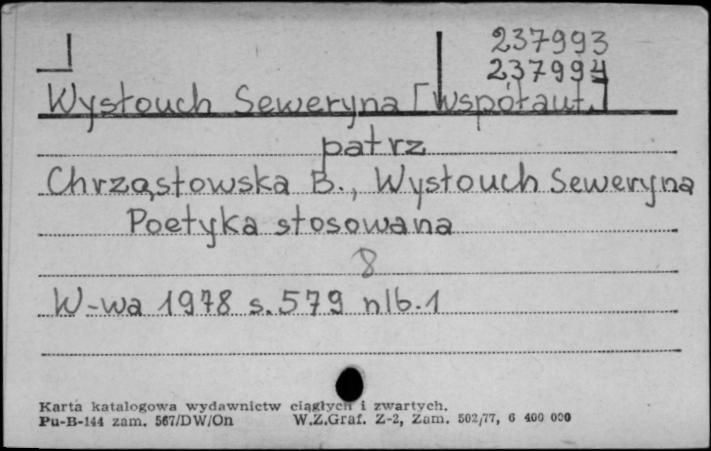 237993
237994
Wysłouch Seweryna [współaut.]
patrz
Chrząstowska B., Wysłouch Seweryna
Poetyka stosowana
8
W-wa 1978 s. 579 nlb. 1
Karta katalogowa wydawnictw ciągłych i zwartych.
Pu-B-144 zam. 567/DW/On W.Z.Graf. Z-2, Zam. 502/77, 6 400 000